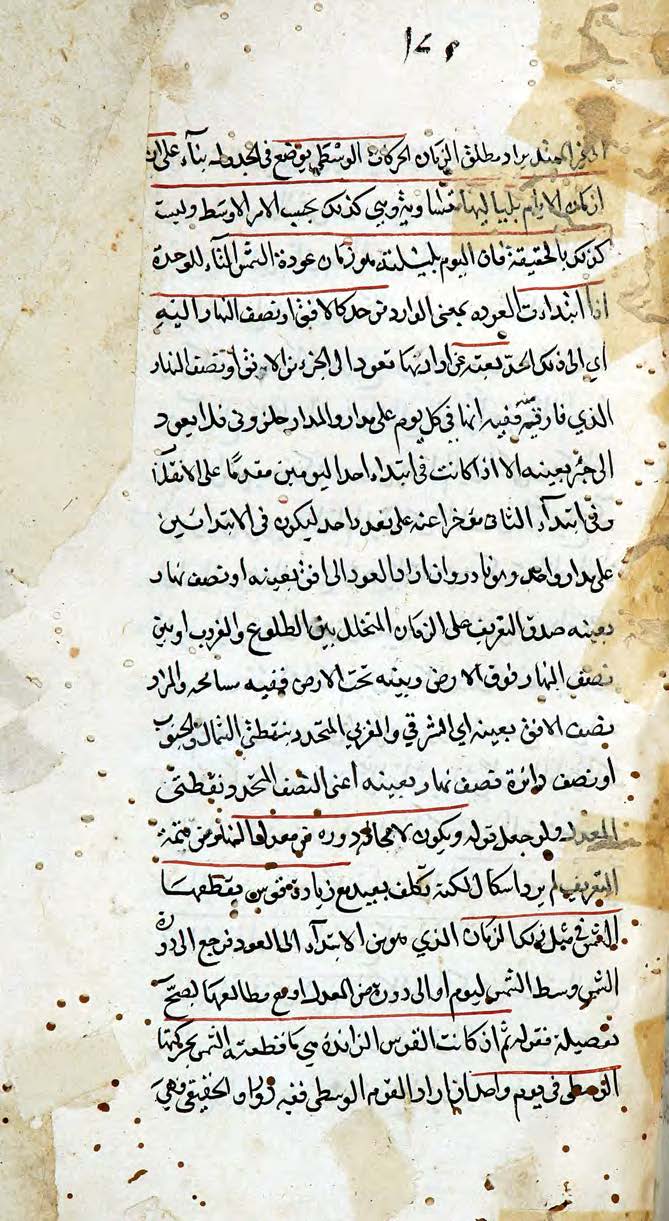 مطلق الزمان الحركات الوسطى يوضع في الجداول بناء على ان
ازمان الايام بلياليها متساوية وهي كذلك بحسب الامر الاوسط وليست
كذلك بالحقيقة فان اليوم بليلته هو زمان عودة الشمس
اذا ابتدات العودة بمعنى الوارد من حد كالافق او نصف النهار اليه
اي الى ذلك الحد بعينه تعود الى الجزء من الافق او نصف النهار
الذي فارقته ففيه انها في كل يوم على مدار والمدار حلزوني فلا يعود
الى جزء بعينه الا اذا كانت في ابتداء احد اليومين مقدما على الانقلاب
وفي ابتداء الثاني مؤخرا عنه على بعد واحد ليكون في الابتدائين
على مدار واحد وهو نادر وان اراد العود الى افق بعينه او نصف نهار
بعينه صدق التعريف على الزمان المتخلل بين الطلوع والغروب او بين
نصف النهار فوق الارض وبينه تحت الارض ففيه مسامحه والمراد
نصف الافق بعينه اي الشرقي والغربي المتحدد بنقطتي الشمال والجنوب
او نصف دائرة نصف نهار بعينه اعني النصف المتحدد بنقطتي
المعدل ولو جعل قوله ويكون لا محالة دوره من معدل النهار من تتمة
التعريف لم يرد اشكال لكنه تكلف بعيد مع زيادة قوس يقطعها
الشمس في مثل ذلك الزمان الذي هو من الابتداء الى العود فرجع الى دورة
الشمس وسط الشمس ليوم او الى دوره من المعدل او مع مطالعها ليصح
تفصيله فقوله ثم ان كانت القوس الزائدة هي ما قطعته الشمس بحركتها
الوسطى في يوم واحد ان اراد القوم الوسطي ففيه دور او الحقيقي فهي